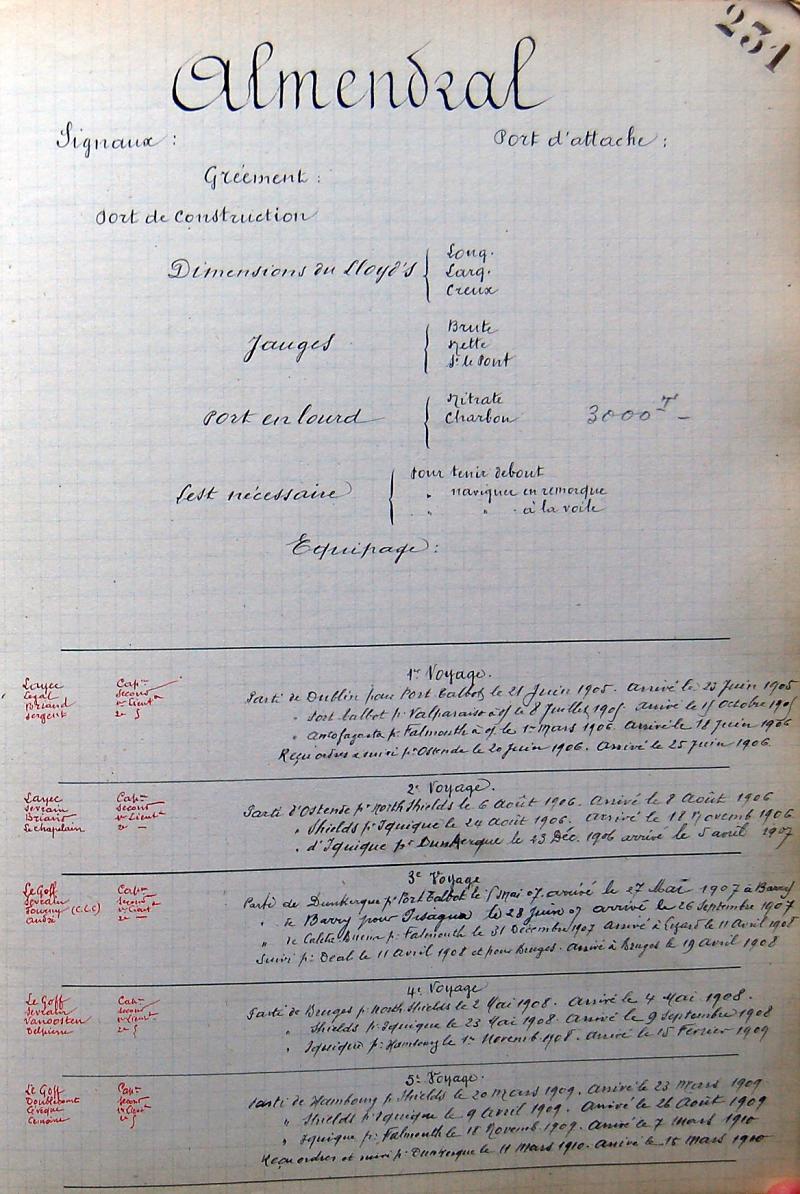 231
Almendral
Signaux : Port d'attache :
Gréement :
Port de Construction
Dimensions du Lloyd's { Long.
Larg.
Creux
Jauges { Brute
Nette
Ss le Pont
Port en lourd { Nitrate
Charbon 3000 T -
Lest nécessaire { pour tenir debout
" naviguer en remorque
" " à la voile
Equipage :
1er Voyage.
Layec Capne
Legal Second
Briand 1er Lieut
Sergent 2e
Parti de Dublin pour Port Talbot le 21 Juin 1905. Arrivé le 23 Juin 1905
" Port Talbot pr Valparaiso à of le 8 Juillet 1905. arrivé le 15 Octobre 1905
" Antofagasta pr Falmouth à of le 1er Mars 1906. Arrivé le 18 Juin 1906
Reçu ordres & suivi pr Ostende le 20 Juin 1906. Arrivé le 25 Juin 1906.
2e Voyage.
Layec Capne
Sevrain Second
Briand 1er Lieut
Le Chapelain 2e —
Parti d'Ostende pr North Shields le 6 Août 1906. Arrivé le 8 Août 1906
" Shields pr Iquique le 24 Août 1906. Arrivé le 18 Novemb 1906
" d'Iquique pr Dunkerque le 23 Déc. 1906 arrivé le 5 avril 1907
3e Voyage
Le Goff Capne
Sevrain Second
Fourny (C.L.C) 1er Lieut
André 2e —
Parti de Dunkerque pr Port Talbot le 5 Mai 07. arrivé le 27 Mai 1907 à Barry
" de Barry pour Pisagua le 28 Juin 07 arrivé le 26 Septembre 1907
" de Caleta Buena pr Falmouth le 31 Décembre 1907 Arrivé à Lizard le 11 Avril 1908
Suivi pr Deal le 11 Avril 1908 et pour Bruges. Arrivé à Bruges le 19 Avril 1908
4e Voyage
Le Goff Capne
Sevrain Second
Vanoosten 1er Lieut
Delpierre 2e
Parti de Bruges pr North Shields le 2 Mai 1908. Arrivé le 4 Mai 1908.
" Shields pr Iquique le 23 Mai 1908. Arrivé le 9 Septembre 1908
" Iquique pr Hambourg le 1er Novemb 1908. Arrivé le 15 Février 1909
5e Voyage.
Le Goff Capne
2e
Parti de Hambourg pr Shields le 20 Mars 1909. Arrivé le 23 Mars 1909
" Shields pr Iquique le 9 Avril 1909. Arrivé le 26 Août 1909
" Iquique pr Falmouth le 18 Novemb 1909. Arrivé le 7 Mars 1910
Reçu ordres et suivi pr Dunkerque le 11 Mars 1910. Arrivé le 15 Mars 1910